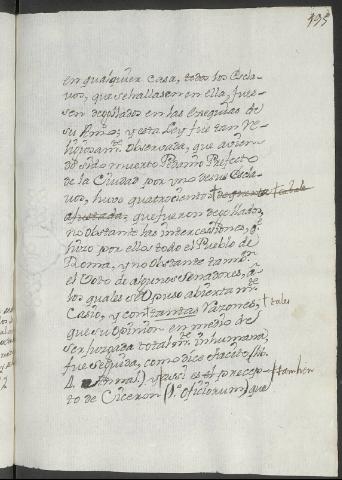 195
en qualquier casa, todos los Escla-
vos, que se hallasen en ella, fues-
sen degollados en las Exequias de
su Amo; y esta Ley fue tan Re-
ligiosamte. Observada, que avien-
do sido muerto Pedanio Prefecto
de la Ciudad por uno de sus Escla-
vos, huvo quatrocientos
que fueron degollados,
no obstante las intercessiones, q.
hizo por ellos todo el Pueblo de
Roma, y no obstante tambn.
el Voto de algunos Senadores, a
los quales se Opuso abiertamte.
Casio, y con tantas Razones, † tales
que su Opinion en medio de
ser juzgada totalmte. inhumana,
fue seguida, como dice Tacito (lib.
4. Annal.) y assi es el precep- † tambien
to de Ciceron (1.o Oficiorum) que